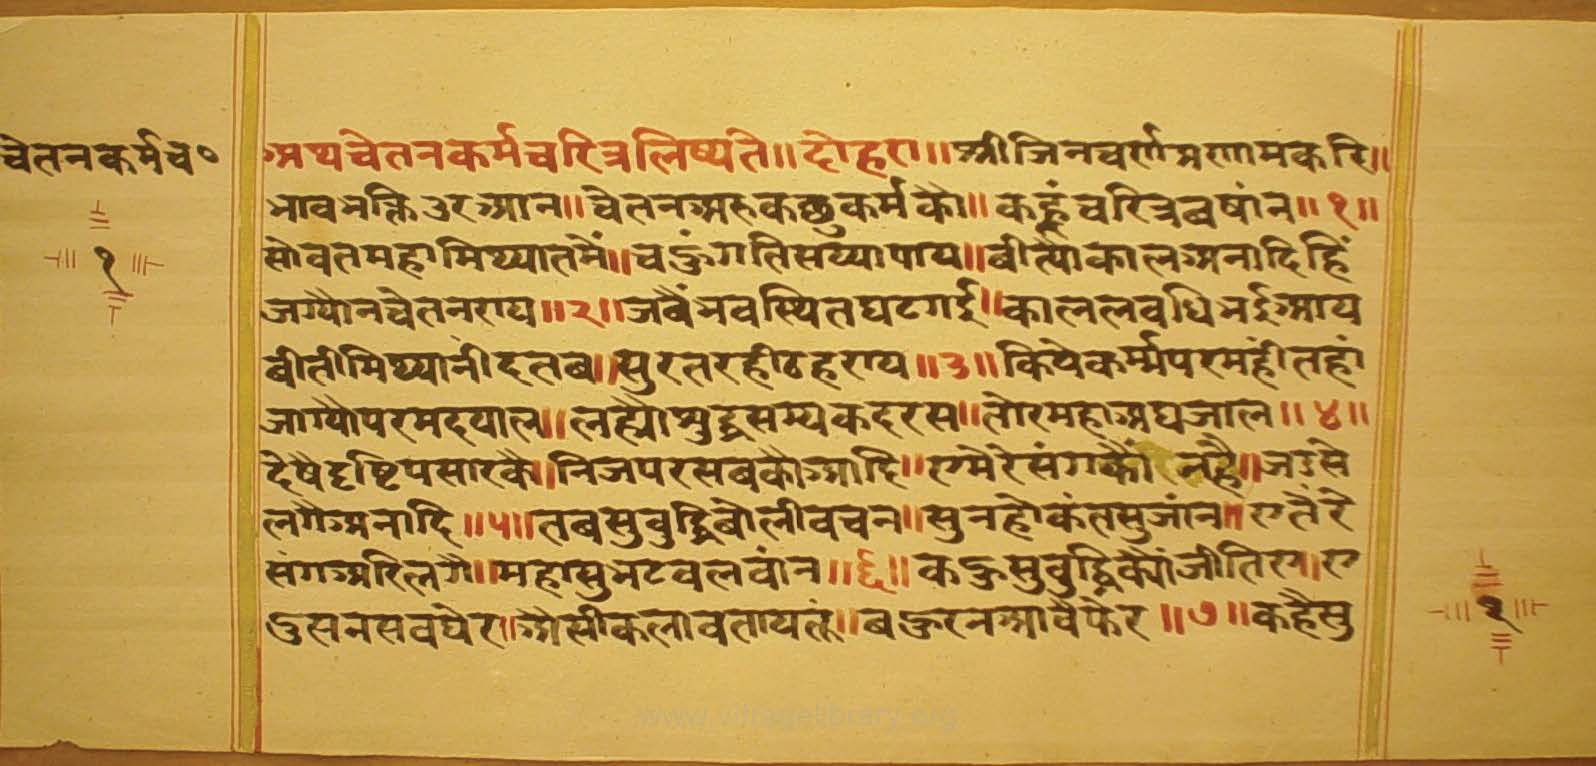 चेतनकर्मच०
१
अथचेतनकर्मचरित्रलिष्यते॥ दोहरा॥ श्रीजिनचर्णप्रणामकरि॥
भावभक्तिउरआन॥ चेतनअरुकछुकर्मकौ॥ कहूंचरित्रबषांन॥ १॥
सोवतमहामिथ्यातमैं॥ चहुंगतिसय्यापाय॥ वीत्यौकालअनादिहिं
जग्यौनचेतनराय॥ २॥ जवैंभवस्थितघटगई॥ काललवधिभईआय
बीतीमिथ्यानींदतब॥ सुरतरहीठहराय॥ ३॥ कियेकर्म्मपरमहींतहां
जाग्यौपरमदयाल॥ लह्यौशुद्धसम्यकदरस॥ तोरमहाअघजाल॥ ४॥
देषैदृष्टिपसारकै॥ निजपरसबकौआदि॥ एमैरेसंगकौंनहै॥ जडसे
लगैअनादि॥ ५॥ तबसुवुद्धिबोलीवचन॥ सुनहौकंतसुजांन॥ एतैंरे
संगअरिलगै॥ महासुभटवलवांन॥ ६॥ कहुसुवुद्धिक्यौंजीतिए॥ ए
दुसनसवघेर॥ औसीकलावतायतूं॥ बहुरनआवैफेर॥ ७॥ कहैसु
१
www.vitragelibrary.org